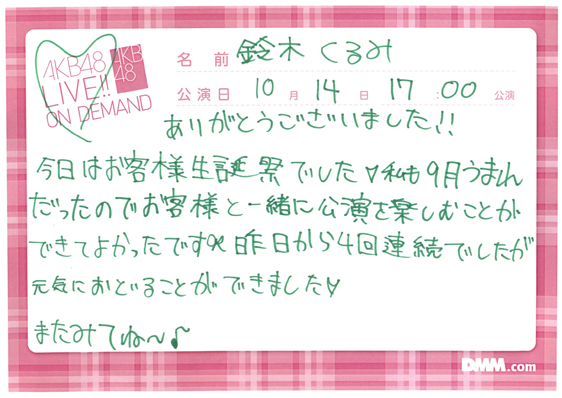 AKB48
LIVE!!
ON DEMAND
AKB
48
名前 鈴木くるみ
公演日 10月14日 17:00公演
ありがとうございました!!
今日はお客様生誕祭でした♡私も9月うまれ
だったのでお客様と一緒に公演を楽しむことが
できてよかったです 昨日から4回連続でしたが
元気におどることができました♡
またみてね〜♪
DMM.com